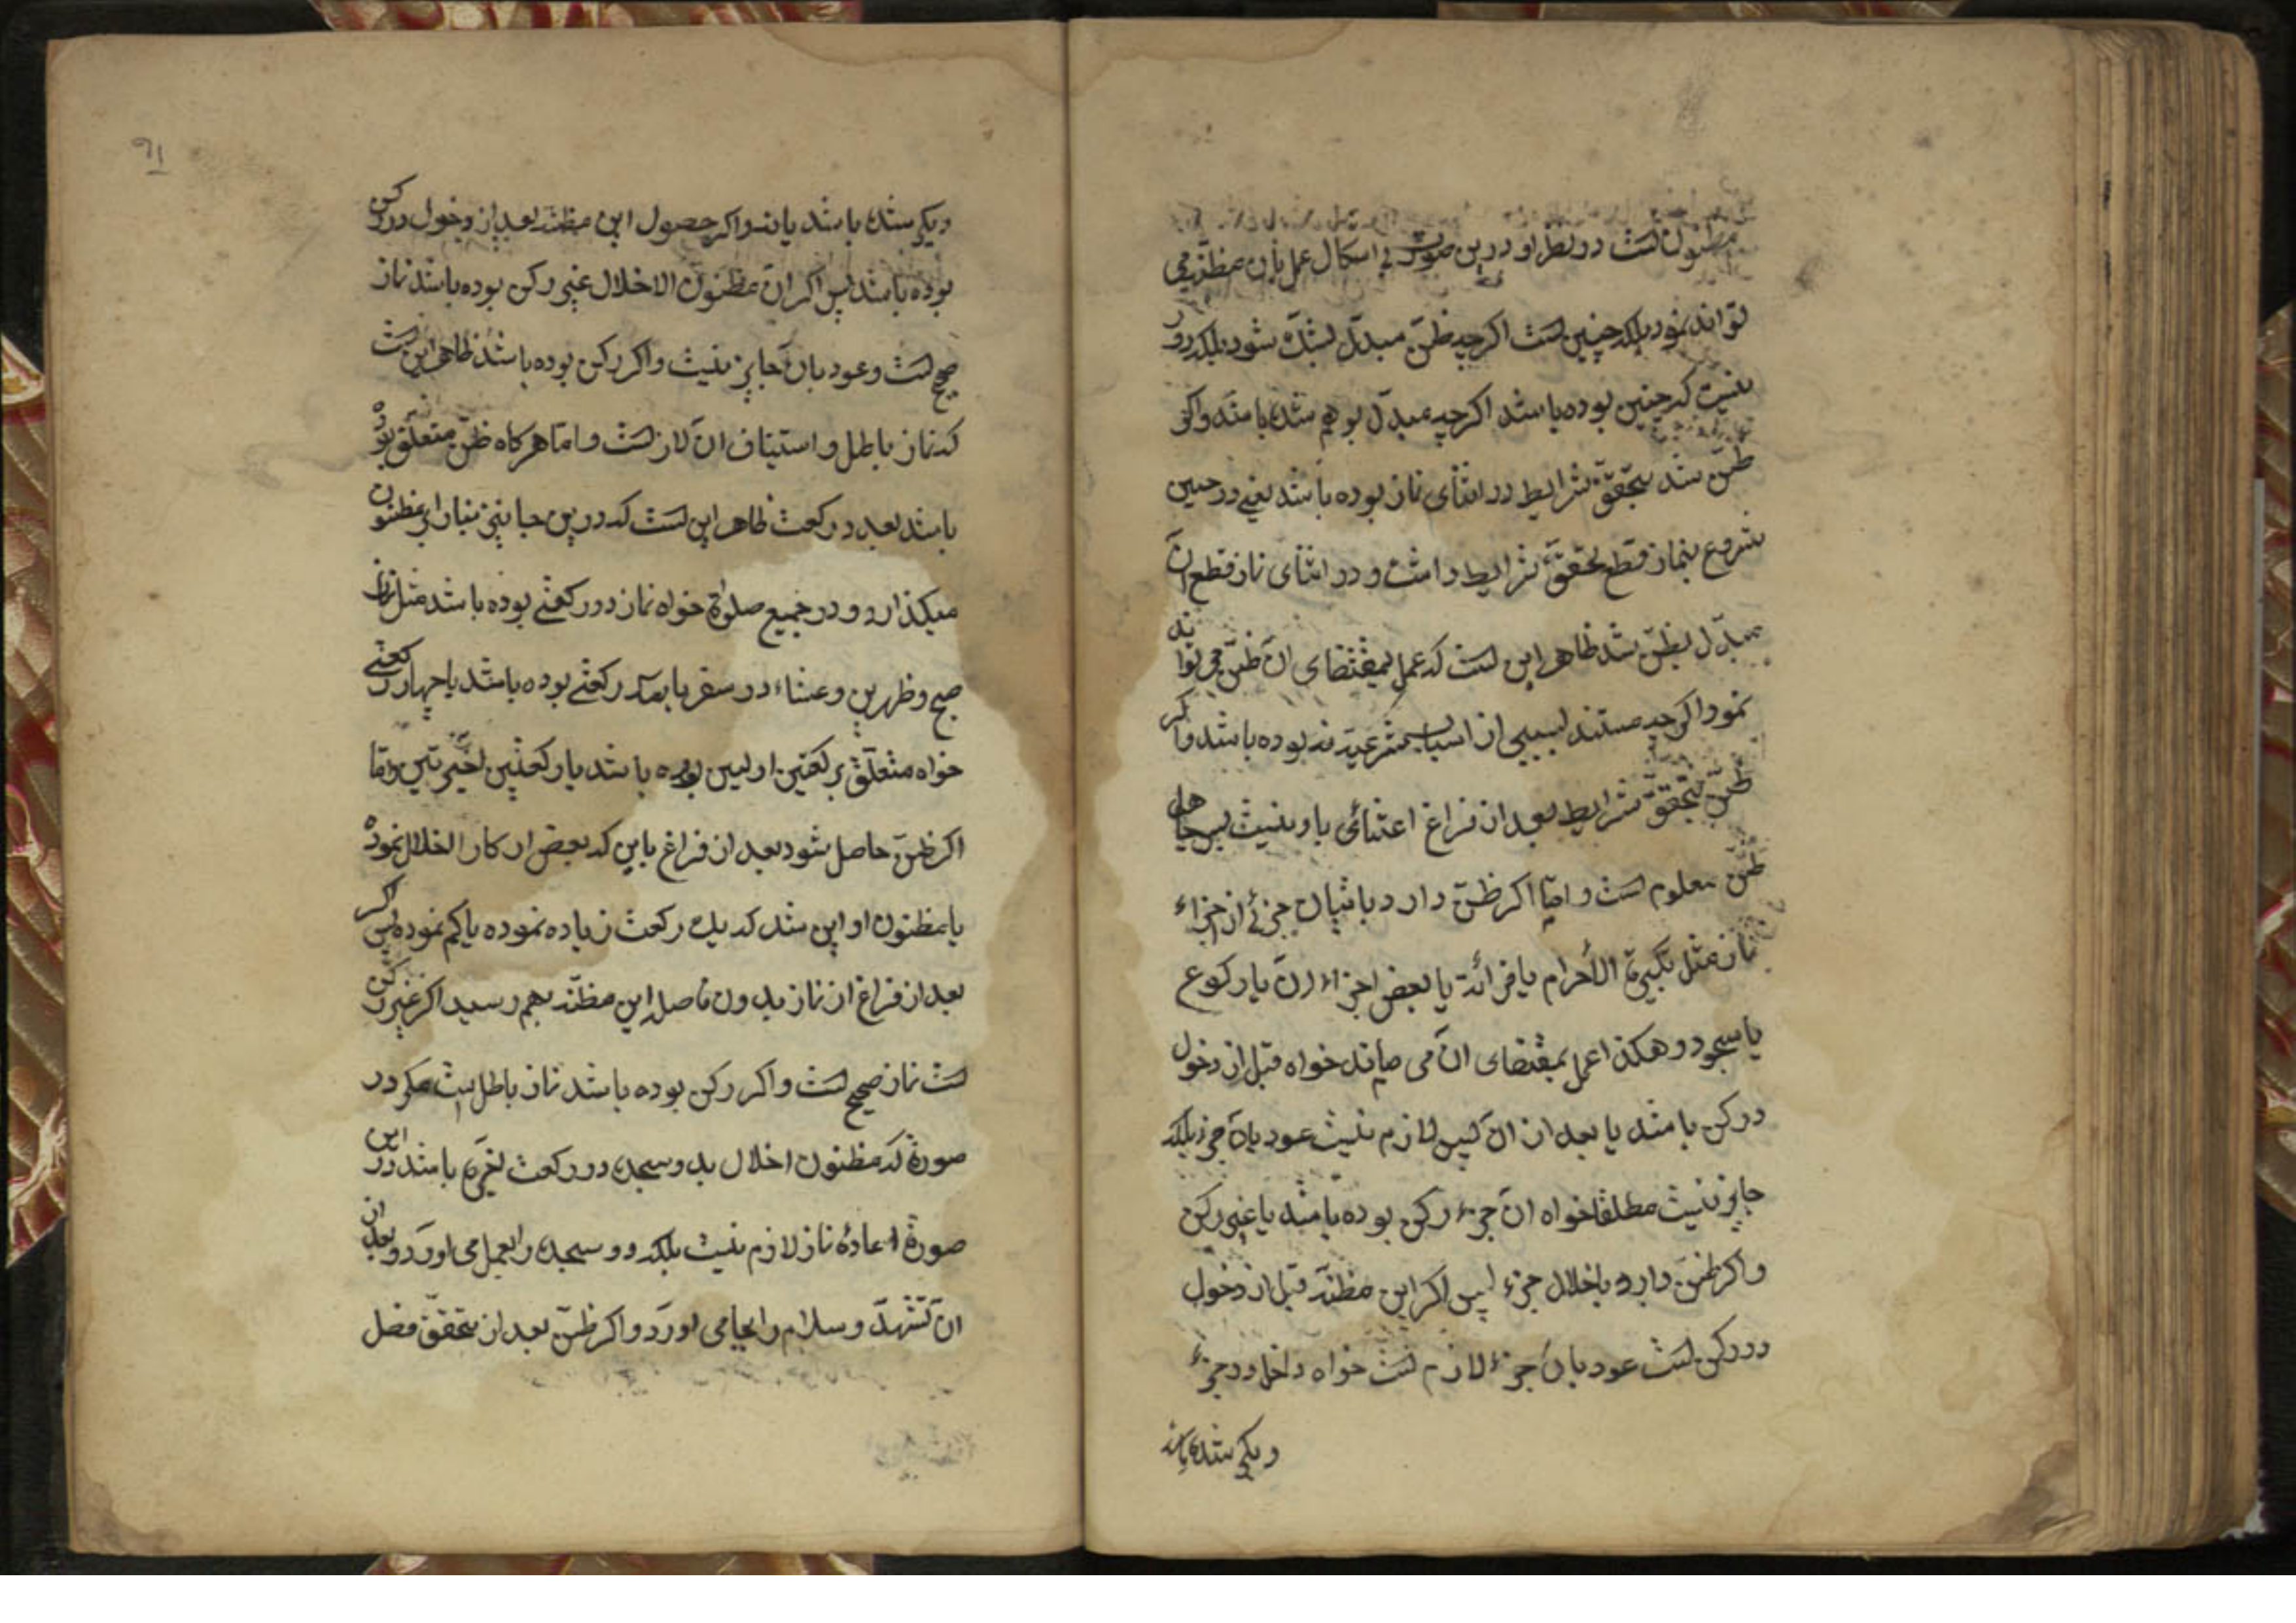 مظنون است در نظر او درین صورت بی اشکال عمل بآن مظنّه می
تواند نمود بلکه چنین است اگرچه ظنّ مبدّل بشکّ شود بلکه دور
نیست که چنین بوده باشد اگرچه مبدّل بوهم شده باشد و اگر
ظنّ شد بتحقّق شرایط در اثنای نماز بوده باشد یعنی در حین
شروع بنماز قطع بتحقّق شرایط داشت و در اثنای نماز قطع آن
مبدّل بظنّ شد ظاهر این است که عمل بمقتضای آن ظنّ می تواند
نمود اگرچه مستند بسببی از اسباب شرعیّه نه بوده باشد و اگر
ظنّ بتحقّق شرایط بعد از فراغ اعتنائی باو نیست پس جاهل
ظنّ معلوم است و امّا اگر ظنّ دارد باتیان جزئی از اجزاء
نماز مثل تکبیرة الأحرام یا قرائة یا بعض اجزاء آن یا رکوع
یا سجود و هکذا عمل بمقتضای آن می ماند خواه قبل از دخول
در رکن باشد یا بعد از آن پس لازم نیست عود بآن جزء بلکه
جایز نیست مطلقا خواه آن جزء رکن بوده باشد یا غیر رکن
و اگر ظنّ دارد باخلال جزء پس اگر این مظنّه قبل از دخول
در رکن است عود بآن جزء لازم است خواه داخل در جزء
دیگر شده باشد
۹۱
دیگر شده باشد یا نه و اگر حصول این مظنّه بعد از دخول در رکن
بوده باشد پس اگر آن مظنون الاخلال غیر رکن بوده باشد نماز
صحیح است و عود بآن جایز نیست و اگر رکن بوده باشد ظاهر این است
که نماز باطل و استیناف آن لازمست و امّا هرگاه ظنّ متعلّق بوده
باشد بعدد رکعت ظاهر این است که درین جا نیز بنا را بر مظنون
میگذارد و در جمیع صلوة خواه نماز دو رکعتی بوده باشد مثل نماز
صبح و ظهرین و عشاء در سفر یا سه رکعتی بوده باشد یا چهار رکعتی
خواه متعلّق برکعتین اولیین بوده باشد یا رکعتین اخیرتین و امّا
اگر ظنّ حاصل شود بعد از فراغ باین که بعض ارکان را اخلال نموده
یا مظنون او این شد که یک رکعت زیاده نموده یا کم نموده پس اگر
بعد از فراغ از نماز بدون فاصله این مظنّه بهم رسید اگر غیر رکن
است نماز صحیح است و اگر رکن بوده باشد نماز باطل است مگر در
صورة که مظنون اخلال بدو سجده در رکعت اخیره باشد در این
صورة اعادهٔ نماز لازم نیست بلکه دو سجده را بعمل می آورد و بعد از
آن تشهّد و سلام را بجا می آورد و اگر ظنّ بعد از تحقّق فصل